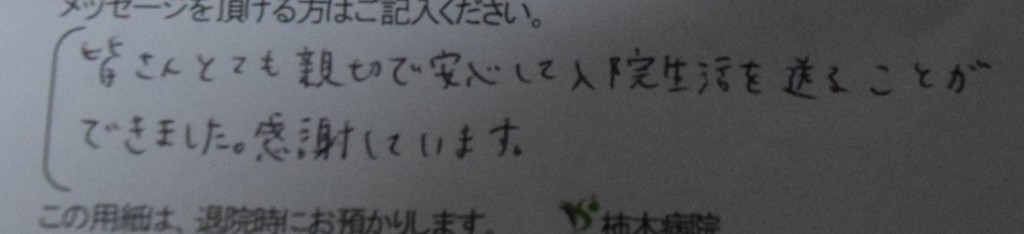 メッセージを頂ける方はご記入ください。
皆さんとても親切で安心して入院生活を送ることが
できました。感謝しています。
この用紙は、退院時にお預かりします。 柿木病院